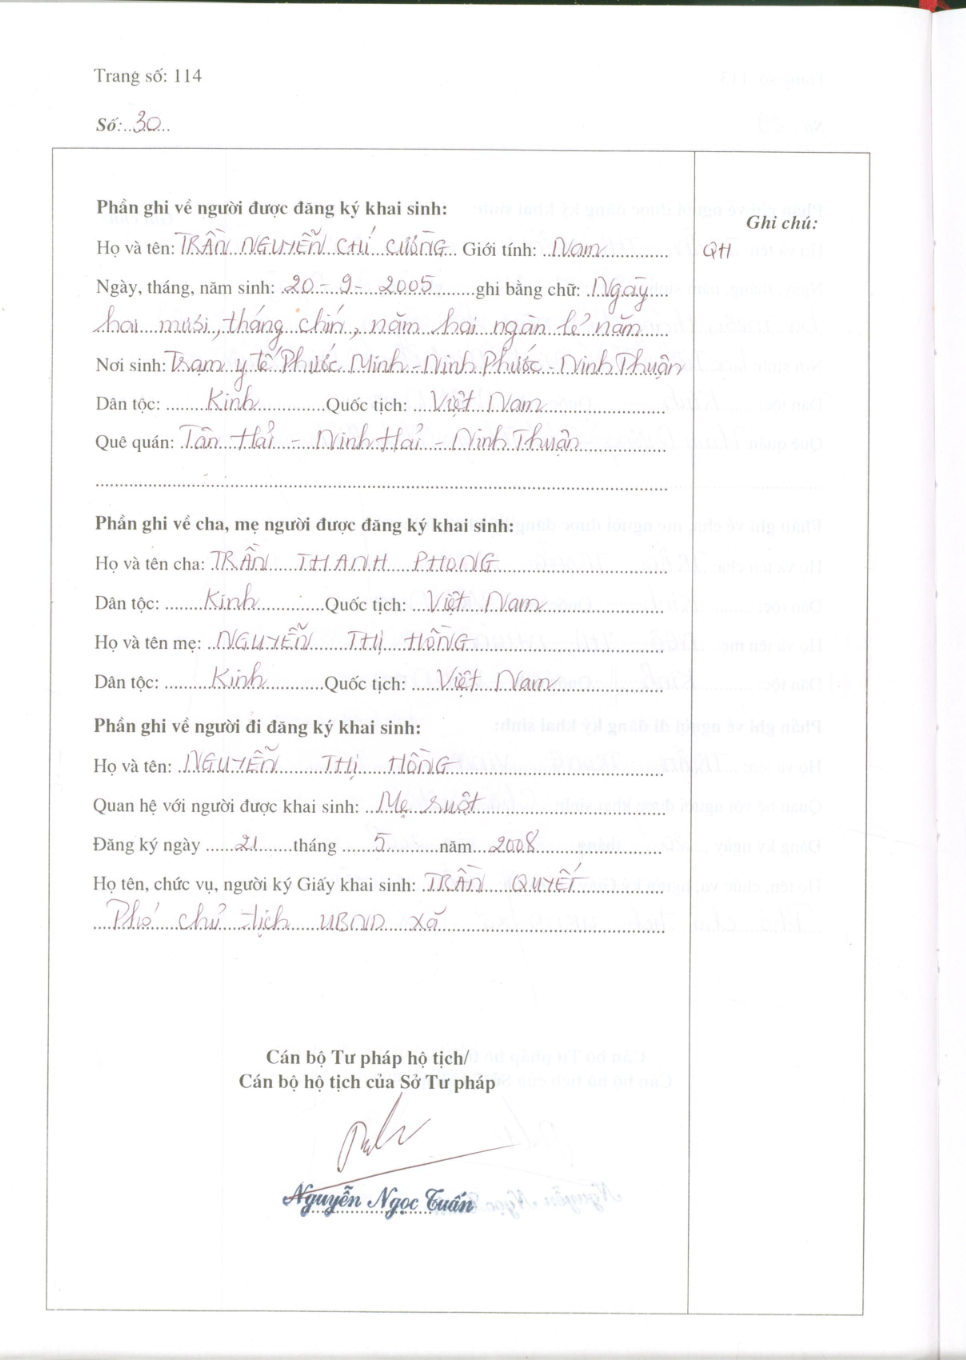 Trang số: 114
Số: 30
Phần ghi về người được đăng ký khai sinh:
Ghi chú:
Họ và tên: TRẦN NGUYỄN CHÍ CƯỜNG Giới tính: Nam QH
Ngày, tháng, năm sinh: 20-9-2005 ghi bằng chữ: Ngày
hai mươi, tháng chín, năm hai ngàn lẻ năm
Nơi sinh: Trạm y tế Phước Minh - Ninh Phước - Ninh Thuận
Dân tộc: Kinh Quốc tịch: Việt Nam
Quê quán: Tân Hải - Ninh Hải - Ninh Thuận
Phần ghi về cha, mẹ người được đăng ký khai sinh:
Họ và tên cha: TRẦN THANH PHONG
Dân tộc: Kinh Quốc tịch: Việt Nam
Họ và tên mẹ: NGUYỄN THỊ HỒNG
Dân tộc: Kinh Quốc tịch: Việt Nam
Phần ghi về người đi đăng ký khai sinh:
Họ và tên: NGUYỄN THỊ HỒNG
Quan hệ với người được khai sinh: Mẹ ruột
Đăng ký ngày 21 tháng 5 năm 2008
Họ tên, chức vụ, người ký Giấy khai sinh: TRẦN QUYẾT
Phó chủ tịch UBND xã
Cán bộ Tư pháp hộ tịch/
Cán bộ hộ tịch của Sở Tư pháp
Nguyễn Ngọc Tuấn